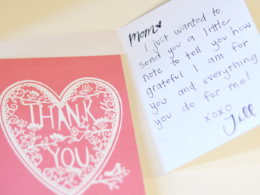 THANK
YOU
Mom♥
I just wanted to
send you a little
note to tell you how
grateful I am for
you and everything
you do for me!
xoxo
Jill